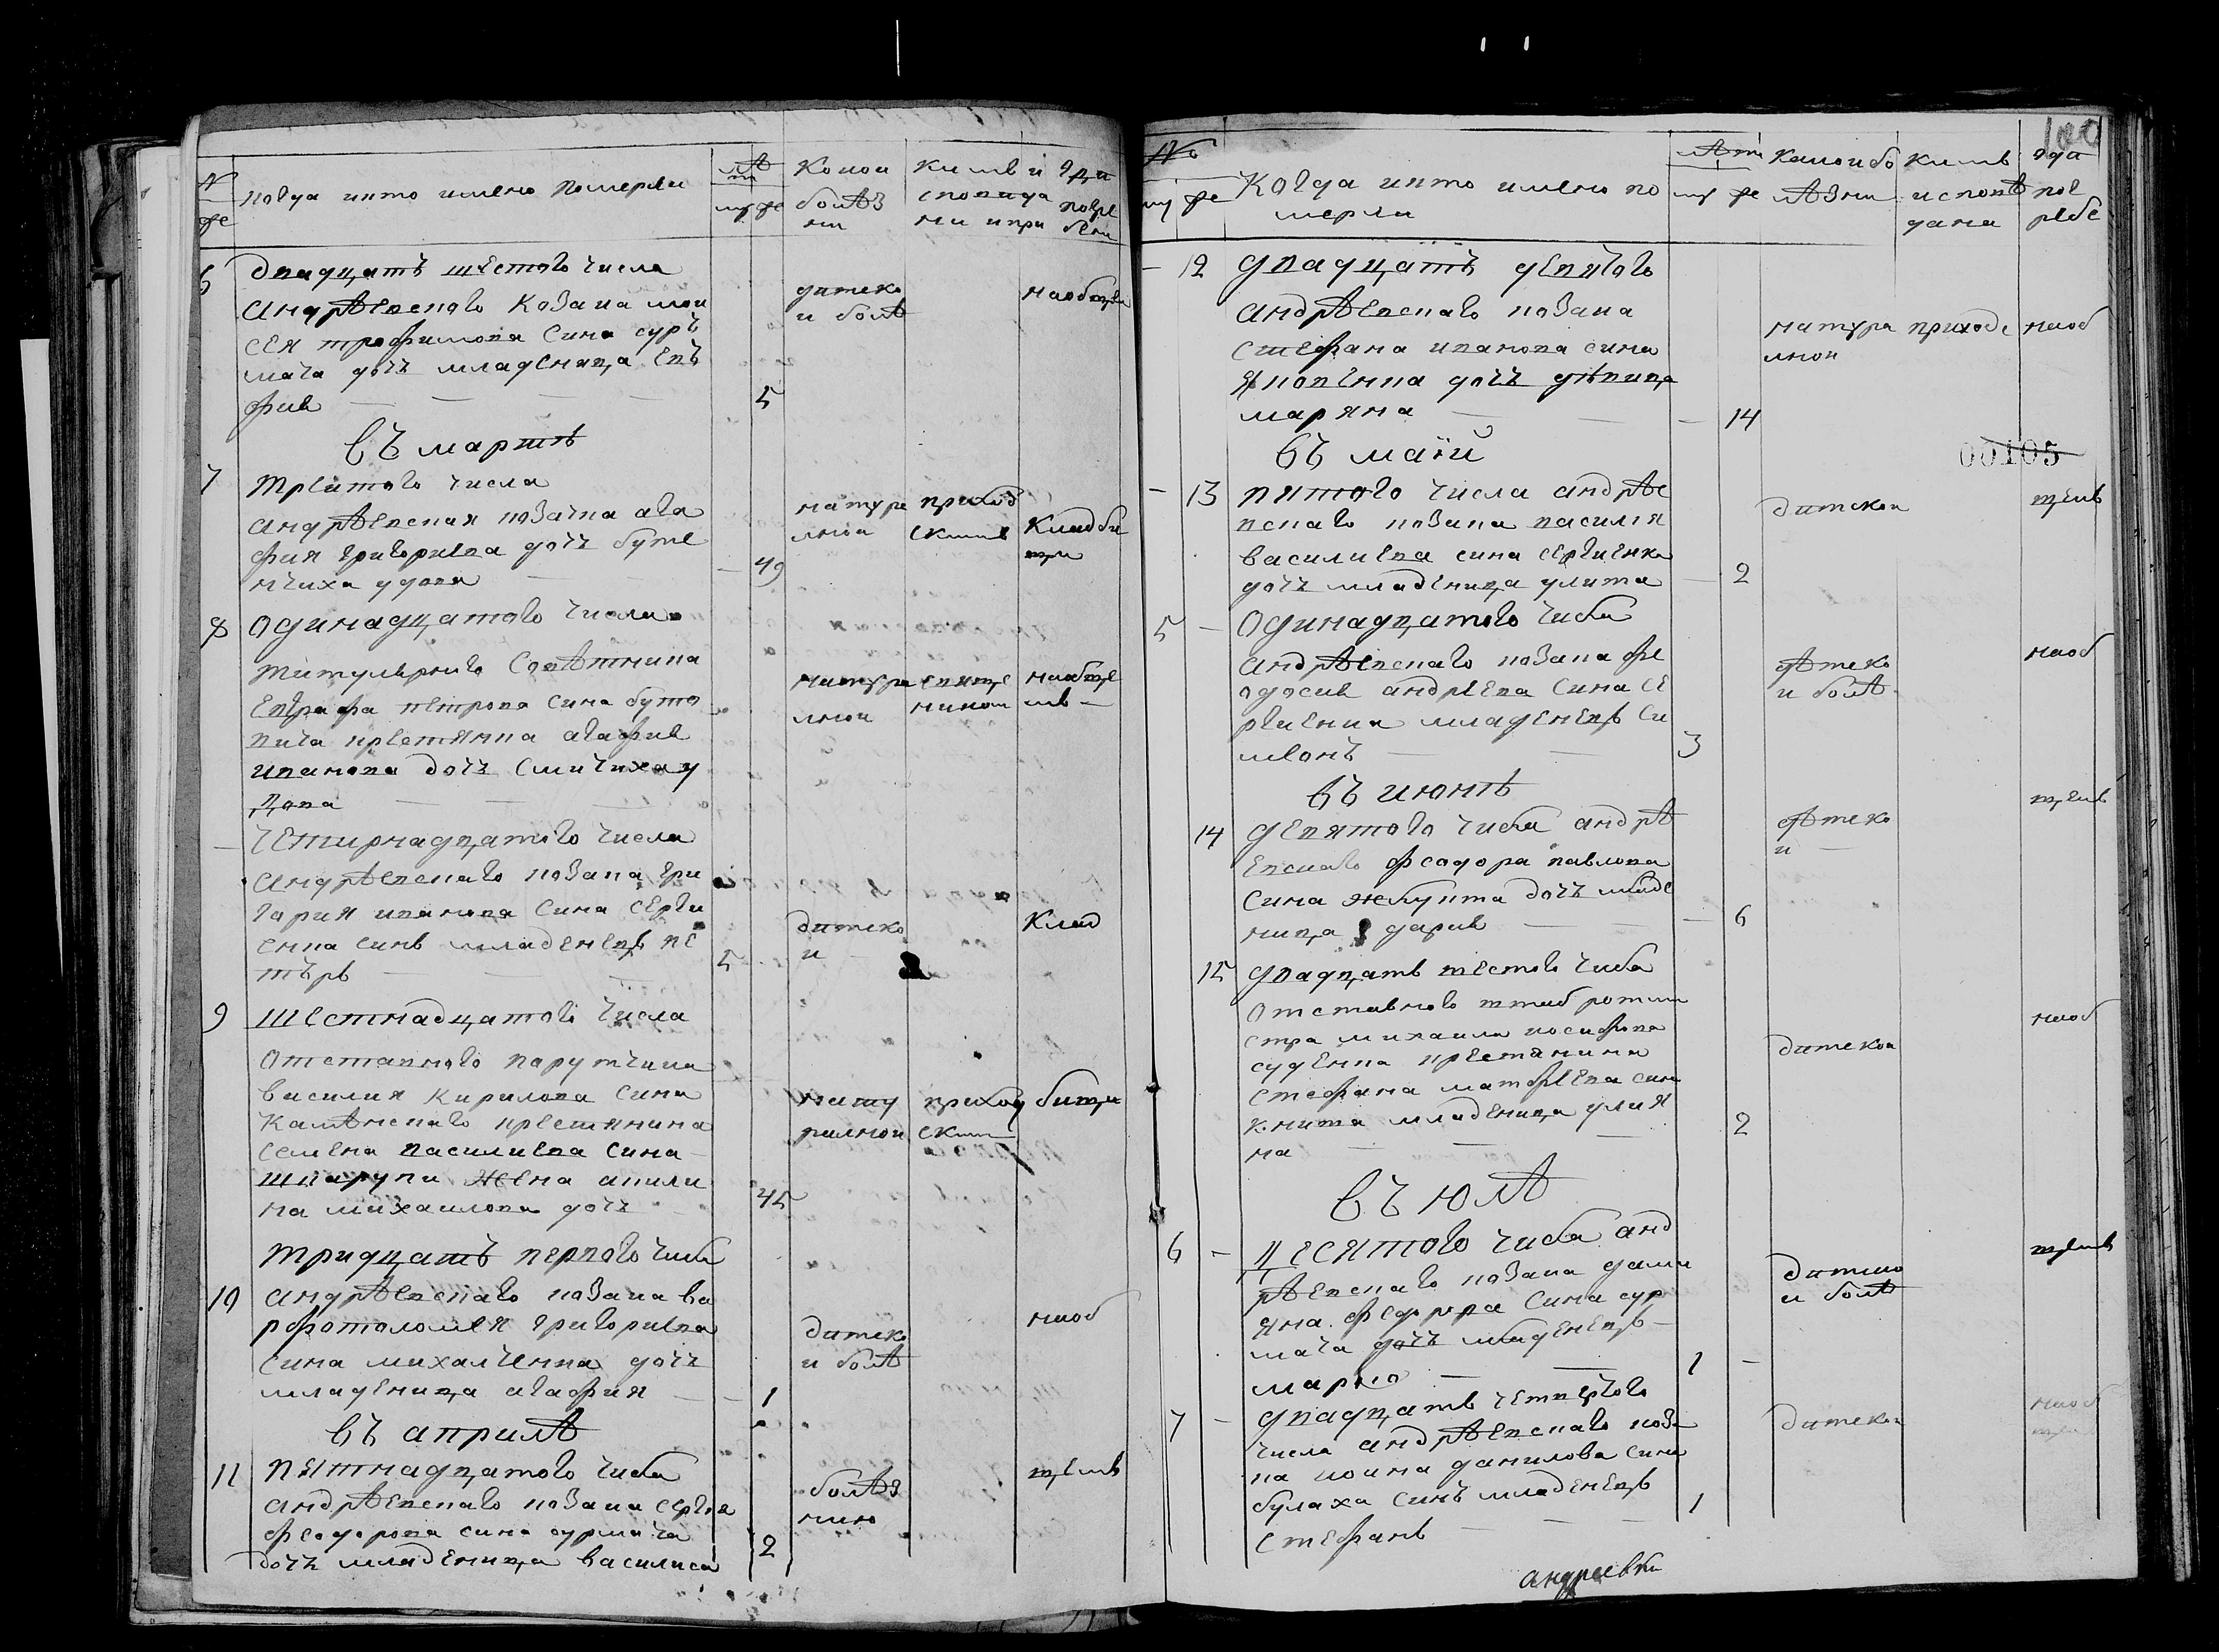 №
же
когда и кто имено померли
лѣт
му же
Какои
болѣз
ни
ким и
споведа
ни и при
гди
погре
бени
6
двадцать шестого числа
андрѣевского козака мои
сея трофимова сина сурь
мача дочъ младеница ев
фия
5
дитско
и болѣ
наобщем
въ мартѣ
7
третого числа
андрѣевская козачка ага
фия григориева дочъ буте
нчиха удова
49
натура
лнои
приход
ским
Кладби
щи
8
одинадцатого числа
титулярного совѣтника
Евграфа петрова сина буто
вича крестянка агафия
иванова дочъ Смичиха у
дова
натура
лнои
наобще
мъ
четирнадцатого числа
андрѣевского козака гри
гория иванова сина серги
енка синъ младенецъ пе
търъ
5
дитско
и
Клад
9
шестнадцатого числа
отставного порутчика
василия кирилова сина
Камѣнского крестянина
семена василиева сина
шкарупи жена акили
на михаилова дочъ
45
нату
ралнои
приход
ским
бищи
тридцать первого числа
10
андрѣевского козака ва
рфотоломея григориева
сина михалченка дочъ
младеница агафия
1
дитско
и болѣ
наоб
въ априлѣ
11
пятнадцатого числа
андрѣевского козака сергея
феодорова сина сурмача
дочъ младеница василиса
2
болѣз
нию
щемъ
100
№
му же
Когда и кто имено по
мерли
лѣт
му же
Какои бо
лѣзни
ким
исповѣ
дана
гди
пог
ребе
12
двадцать девятого
андрѣевского козака
стефана иванова сина
Яковенка дочъ дѣвица
маряна
14
натура
лнои
приходс
наоб
00105
въ маiи
13
пятого числа андрѣе
вского козака василия
василиева сина сергиенка
дочъ младеница улита
2
дитскои
щемъ
5
одинадцатого числа
андрѣевского козака фе
одосия андреева сина се
ргиенка младенецъ си
меонъ
3
дѣтско
и болѣ
наоб
въ июнѣ
14
девятого числа андрѣ
евского феодора павлова
сина жовнита дочъ младе
ница дария
6
дѣтско
и
щемъ
15
двадцать шестого числа
отставного штаб ротми
стра михаила иосифова
суденка крестянина
стефана матфеева сина
книта младеница улия
на
2
дитскои
наоб
въ юлѣ
6
десятого числа анд
рѣевского козака дами
яна федора сина сур
мача дочъ младенецъ
марко
1
дитско
и болѣ
щемъ
7
двадцать четвертого
числа андрѣевского коза
ка иоана данилова сина
булаха синъ младенецъ
стефанъ
1
дитскои
наоб
андреевки